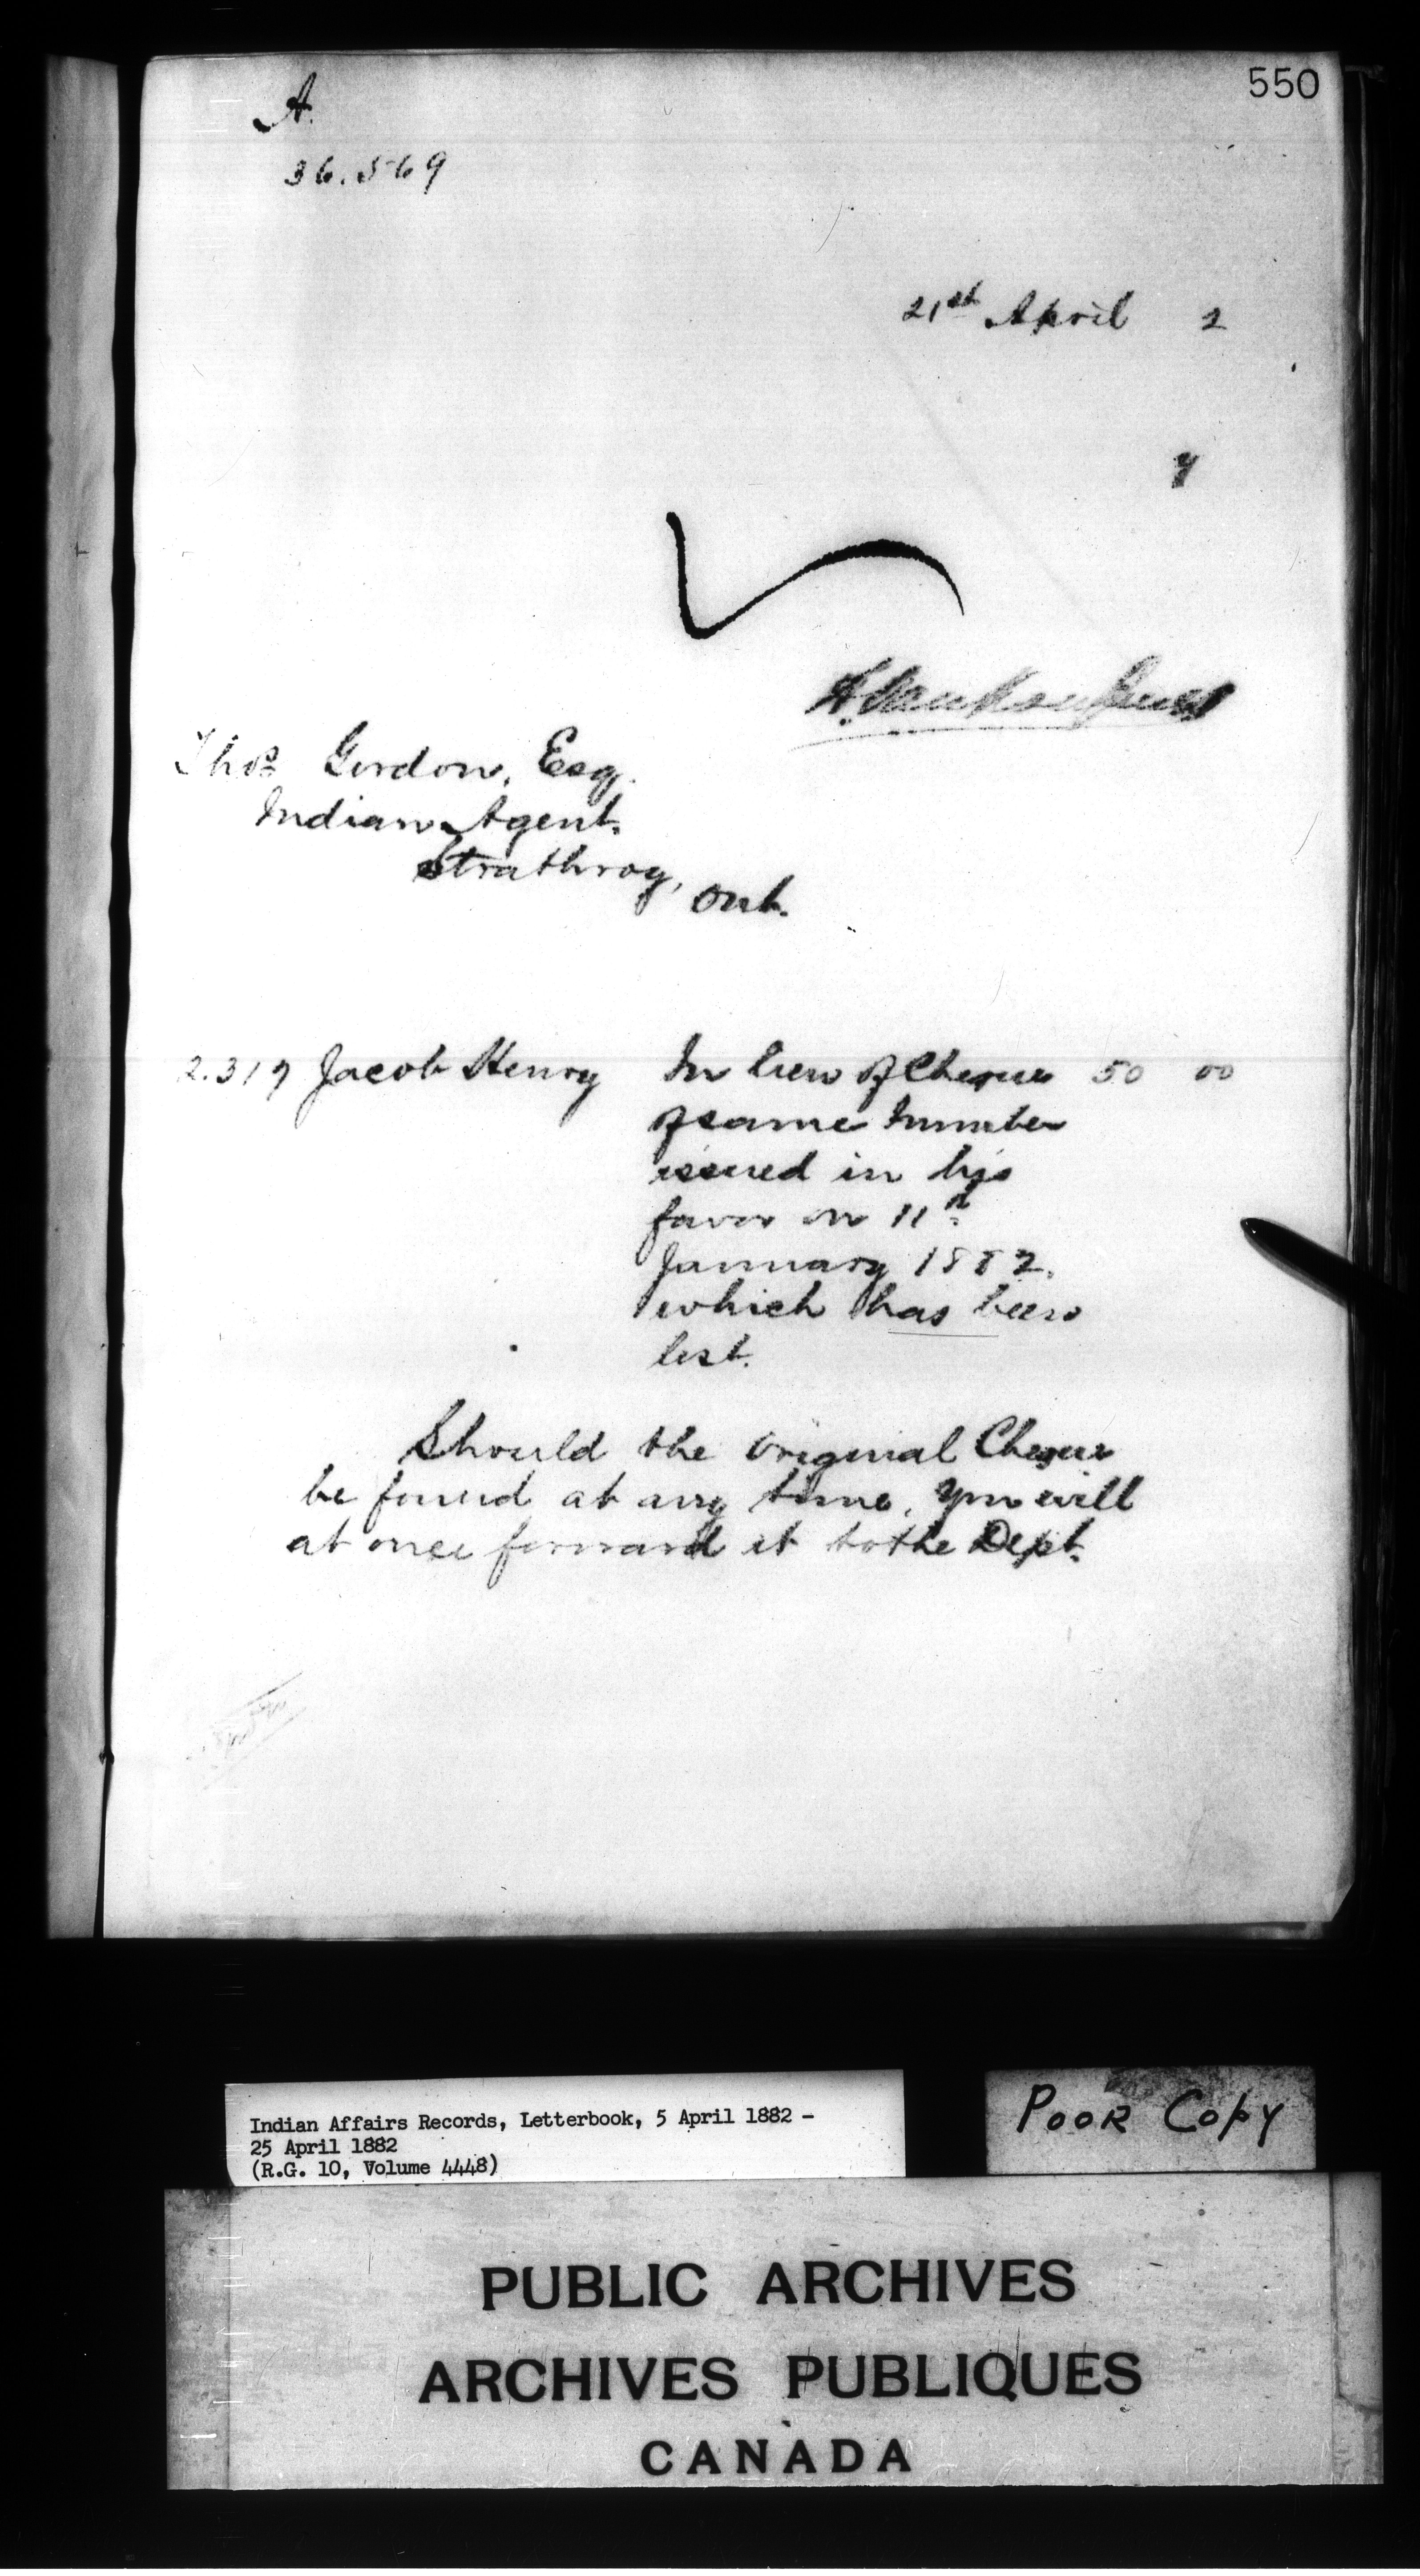 550
A.
36.569
21st April 2
Thos Gordon, Esq.
Indian Agent.
Strathroy,
Ont.
2.317 Jacob Henry In lieu of Cheque 50 00
of same number
issued in his
favor on 11th
January 1882.
which has been
lost.
Should the original Cheque
be found at any time, you will
at once forward it to the Dept.
Indian Affairs Records, Letterbook, 5 April 1882 -
25 April 1882
(R.G. 10, Volume 4448)
POOR COPY
PUBLIC ARCHIVES
ARCHIVES PUBLIQUES
CANADA